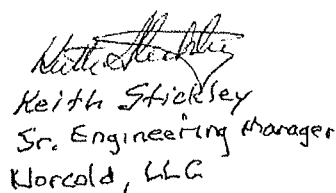 Keith Stickley
Keith Stickley
Sr. Engineering Manager
Norcold, LLC